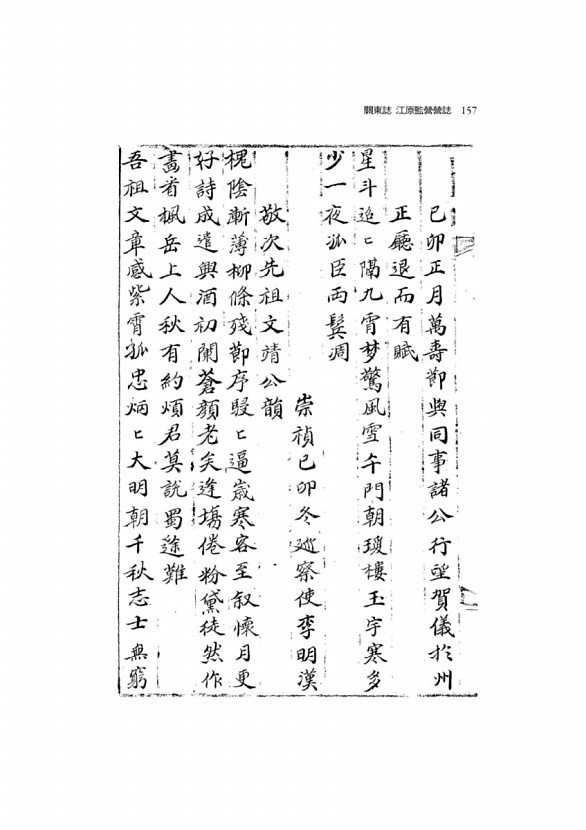 關東誌 江原監營營誌 157
己卯正月萬壽節與同事諸公行望賀儀於州
正廳退而有賦
星斗迢〻隔九霄梦驚風雪千門朝瓊樓玉宇寒多
少一夜孤臣両鬂凋
崇禎己卯冬巡察使李明漢
敬次先祖文靖公韻
槐陰漸薄柳條殘節序駸〻逼歲寒客至叙懷月更
好詩成遣興酒初闌蒼顔老矣逢塲倦粉黛徒然作
畵看楓岳上人秋有約煩君莫說蜀途難
吾祖文章感紫霄孤忠炳〻大明朝千秋志士無窮